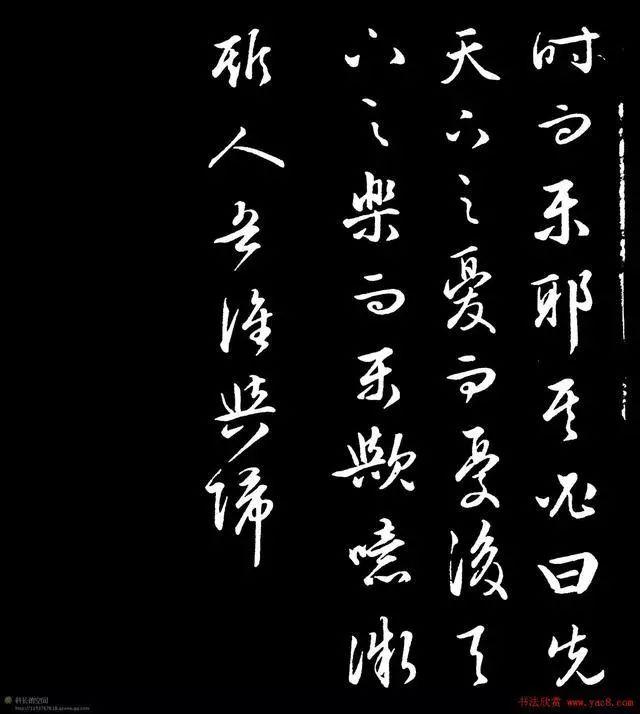 时而乐耶其必曰先
天下之憂而憂後天
下之樂而乐歟噫微
斯人吾誰與歸
科长的空间
书法欣赏 www.yac8.com